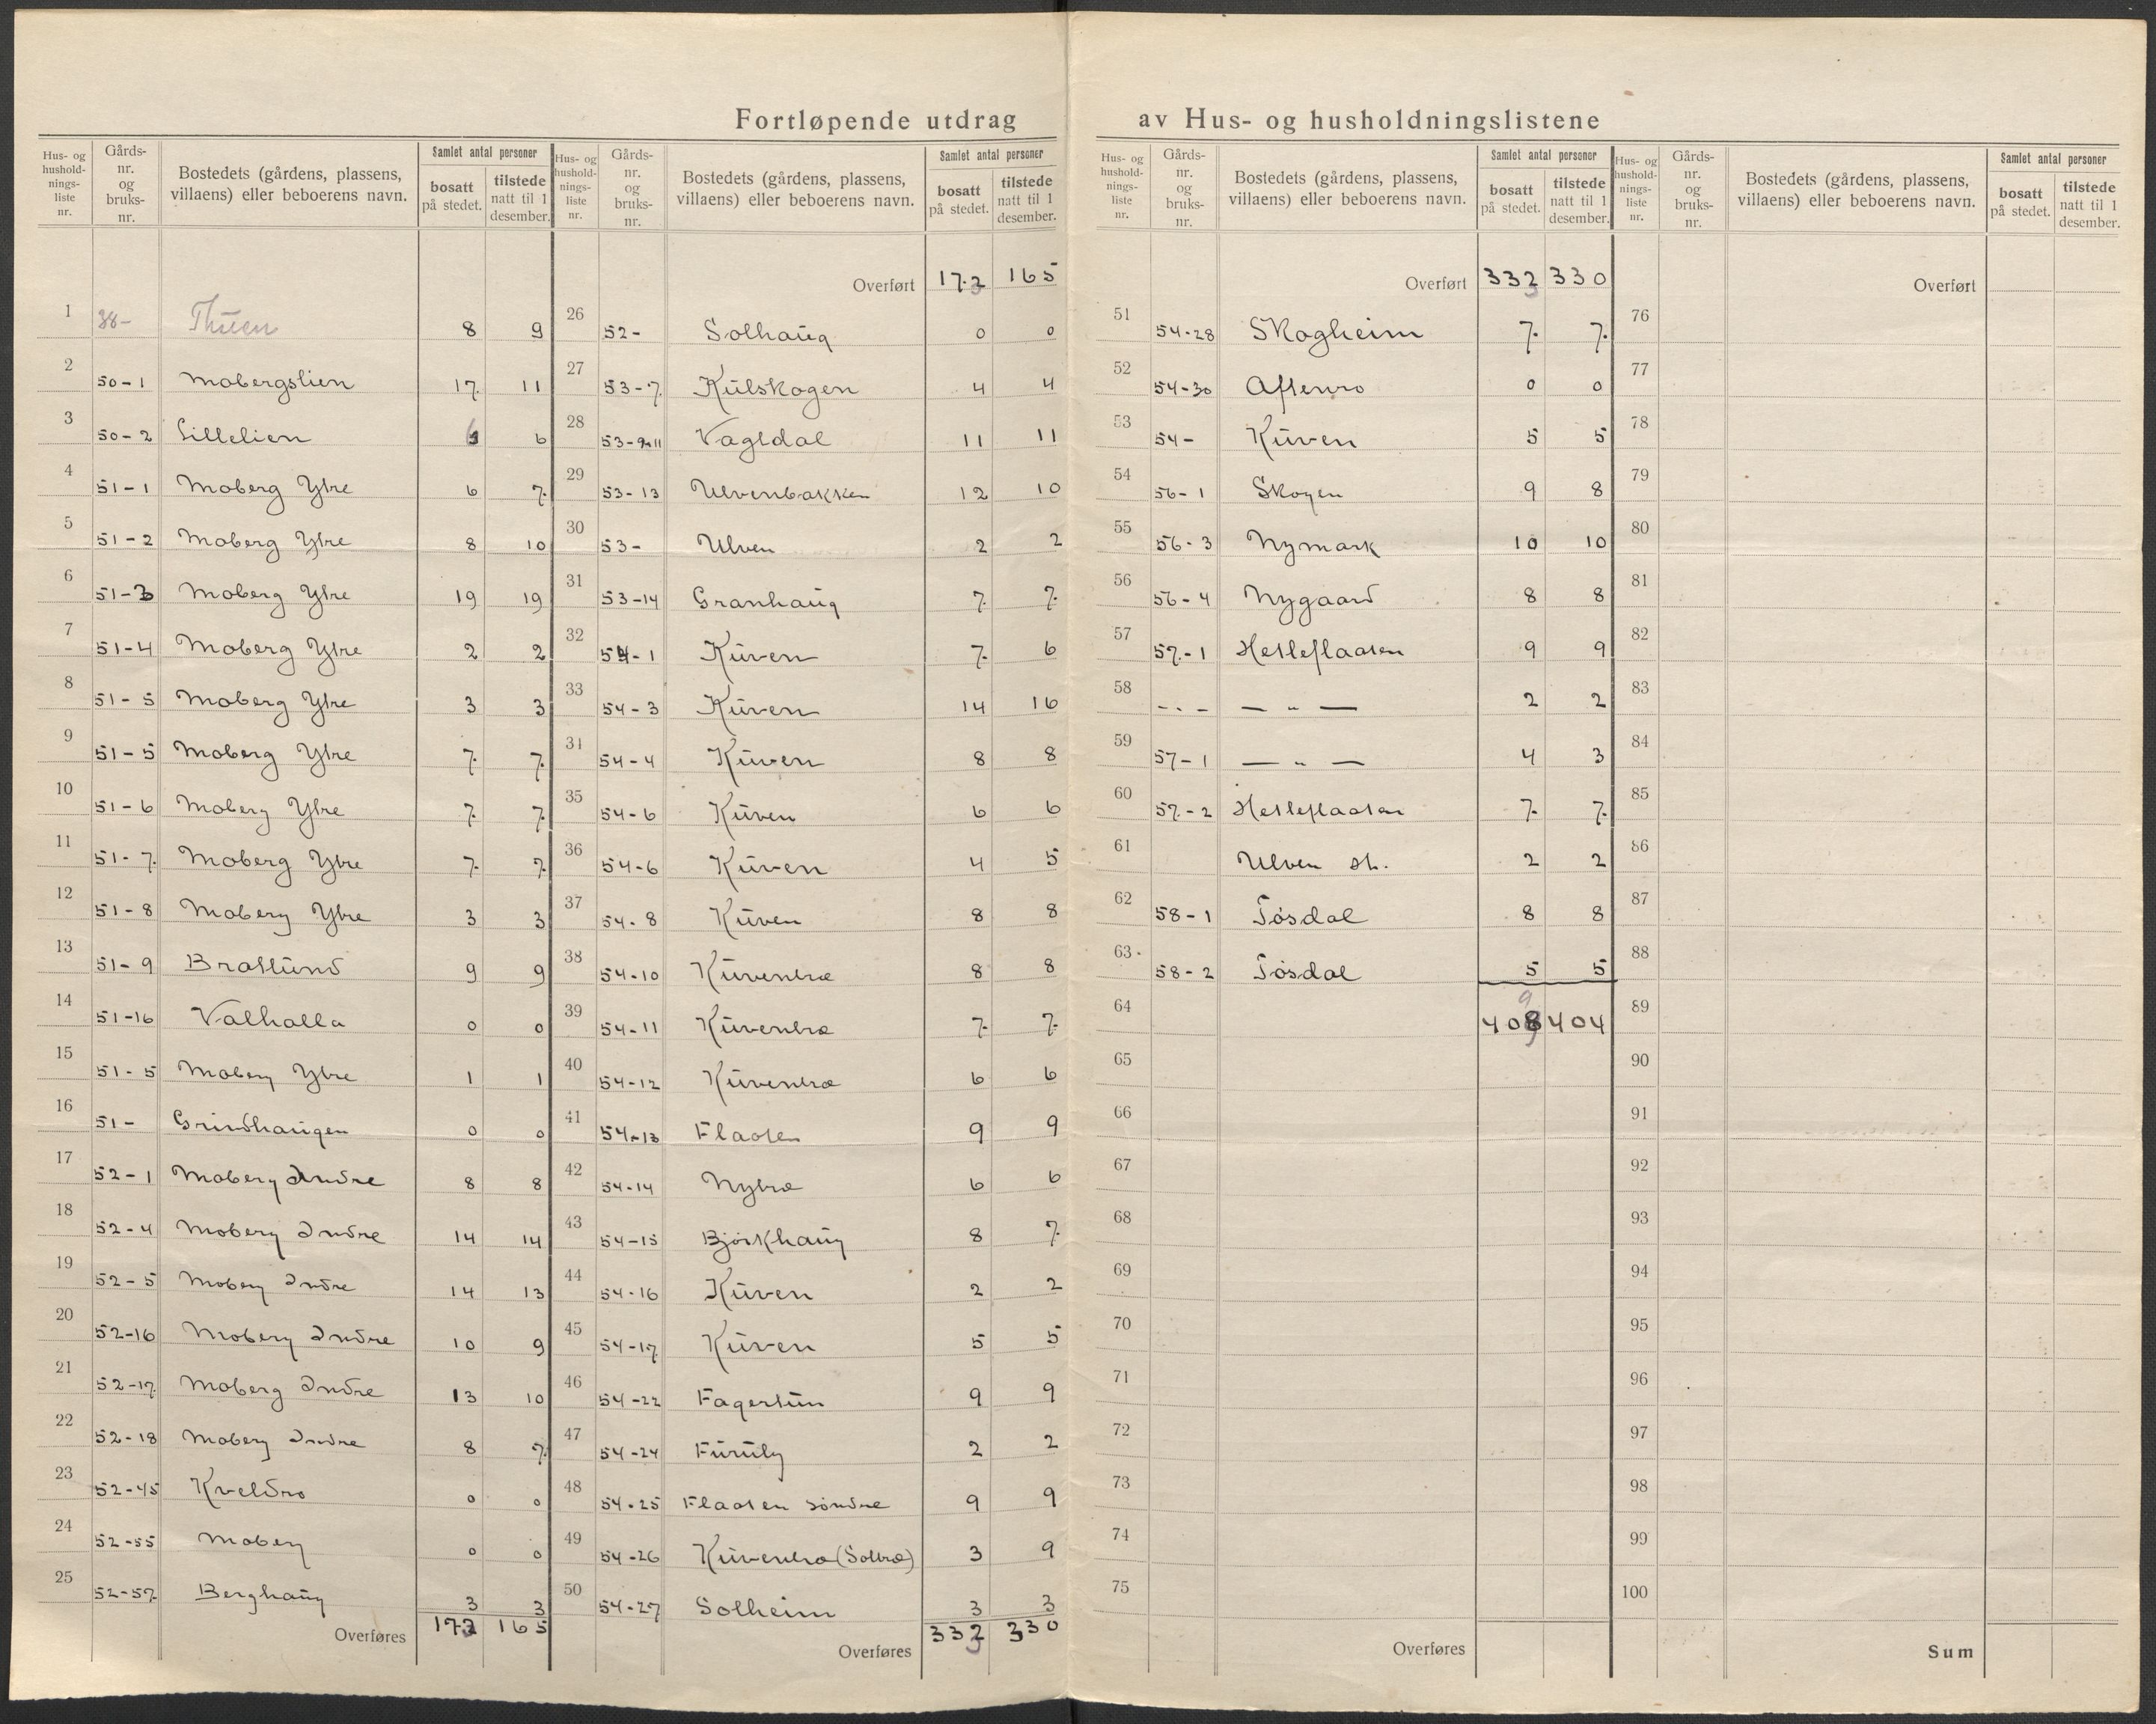 Fortløpende utdrag av Hus- og husholdningslistene
Hus- og hushold-nings-liste nr. | Gårds-nr. og bruks-nr. | Bostedets (gårdens, plassens, villaens) eller beboerens navn. | Samlet antal personer | bosatt på stedet. | tilstede natt til 1 desember.
1 38- Thuen 8 9
2 50-1 Mobergslien 17 11
3 50-2 Lillelien 6
4 51-1 Moberg Ytre 6 7
5 51-2 Moberg Ytre 8 10
6 51-3 Moberg Ytre 19 19
7 51-4 Moberg Ytre 2 2
8 51-5 Moberg Ytre 3 3
9 51-5 Moberg Ytre 7 7
10 51-6 Moberg Ytre 7 7
11 51-7 Moberg Ytre 7 7
12 51-8 Moberg Ytre 3 3
13 51-9 Bratlund 9 9
14 51-16 Valhalla 0 0
15 51-5 Moberg Ytre 1 1
16 51- Grindhaugen 0 0
17 52-1 Moberg Indre 8 8
18 52-4 Moberg Indre 14 14
19 52-5 Moberg Indre 14 13
20 52-16 Moberg Indre 10 9
21 52-17 Moberg Indre 13 10
22 52-18 Moberg Indre 8 7
23 52-45 Kveldro 0 0
24 52-55 Moberg 0 0
25 52-57 Berghaug 3 3
Overføres 172 165
Hus- og hushold-nings-liste nr. | Gårds-nr. og bruks-nr. | Bostedets (gårdens, plassens, villaens) eller beboerens navn. | Samlet antal personer | bosatt på stedet. | tilstede natt til 1 desember.
Overført 172 165
26 52- Solhaug 0 0
27 53-7 Kulskogen 4 4
28 53-9-11 Vagldal 11 11
29 53-13 Ulvenbakken 12 10
30 53- Ulven 2 2
31 53-14 Granhaug 7 7
32 54-1 Kuven 7 6
33 54-3 Kuven 14 16
34 54-4 Kuven 8 8
35 54-6 Kuven 6 6
36 54-6 Kuven 4 5
37 54-8 Kuven 8 8
38 54-10 Kuventræ 8 8
39 54-11 Kuventræ 7 7
40 54-12 Kuventræ 6 6
41 54-13 Flaaten 9 9
42 54-14 Nytræ 6 6
43 54-15 Bjørkhaug 8 7
44 54-16 Kuven 2 2
45 54-17 Kuven 5 5
46 54-22 Fagertun 9 9
47 54-24 Furuly 2 2
48 54-25 Flaaten søndre 9 9
49 54-26 Kuventræ (Soltræ) 3 9
50 54-27 Solheim 3 3
Overføres 332 330
Hus- og hushold-nings-liste nr. | Gårds-nr. og bruks-nr. | Bostedets (gårdens, plassens, villaens) eller beboerens navn. | Samlet antal personer | bosatt på stedet. | tilstede natt til 1 desember.
Overført 332 330
51 54-28 Skogheim 7 7
52 54-30 Aftenro 0 0
53 54- Kuven 5 5
54 56-1 Skogen 9 8
55 56-3 Nymark 10 10
56 56-4 Nygaard 8 8
57 57-1 Hetleflaaten 9 9
58 - . - — " — 2 2
59 57-1 — " — 4 3
60 57-2 Hetleflaaten 7 7
61 Ulven st. 2 2
62 58-1 Tøsdal 8 8
63 58-2 Tøsdal 5 5
64 408 404
65
66
67
68
69
70
71
72
73
74
75
Overføres
Hus- og hushold-nings-liste nr. | Gårds-nr. og bruks-nr. | Bostedets (gårdens, plassens, villaens) eller beboerens navn. | Samlet antal personer | bosatt på stedet. | tilstede natt til 1 desember.
Overført
76
77
78
79
80
81
82
83
84
85
86
87
88
89
90
91
92
93
94
95
96
97
98
99
100
Sum